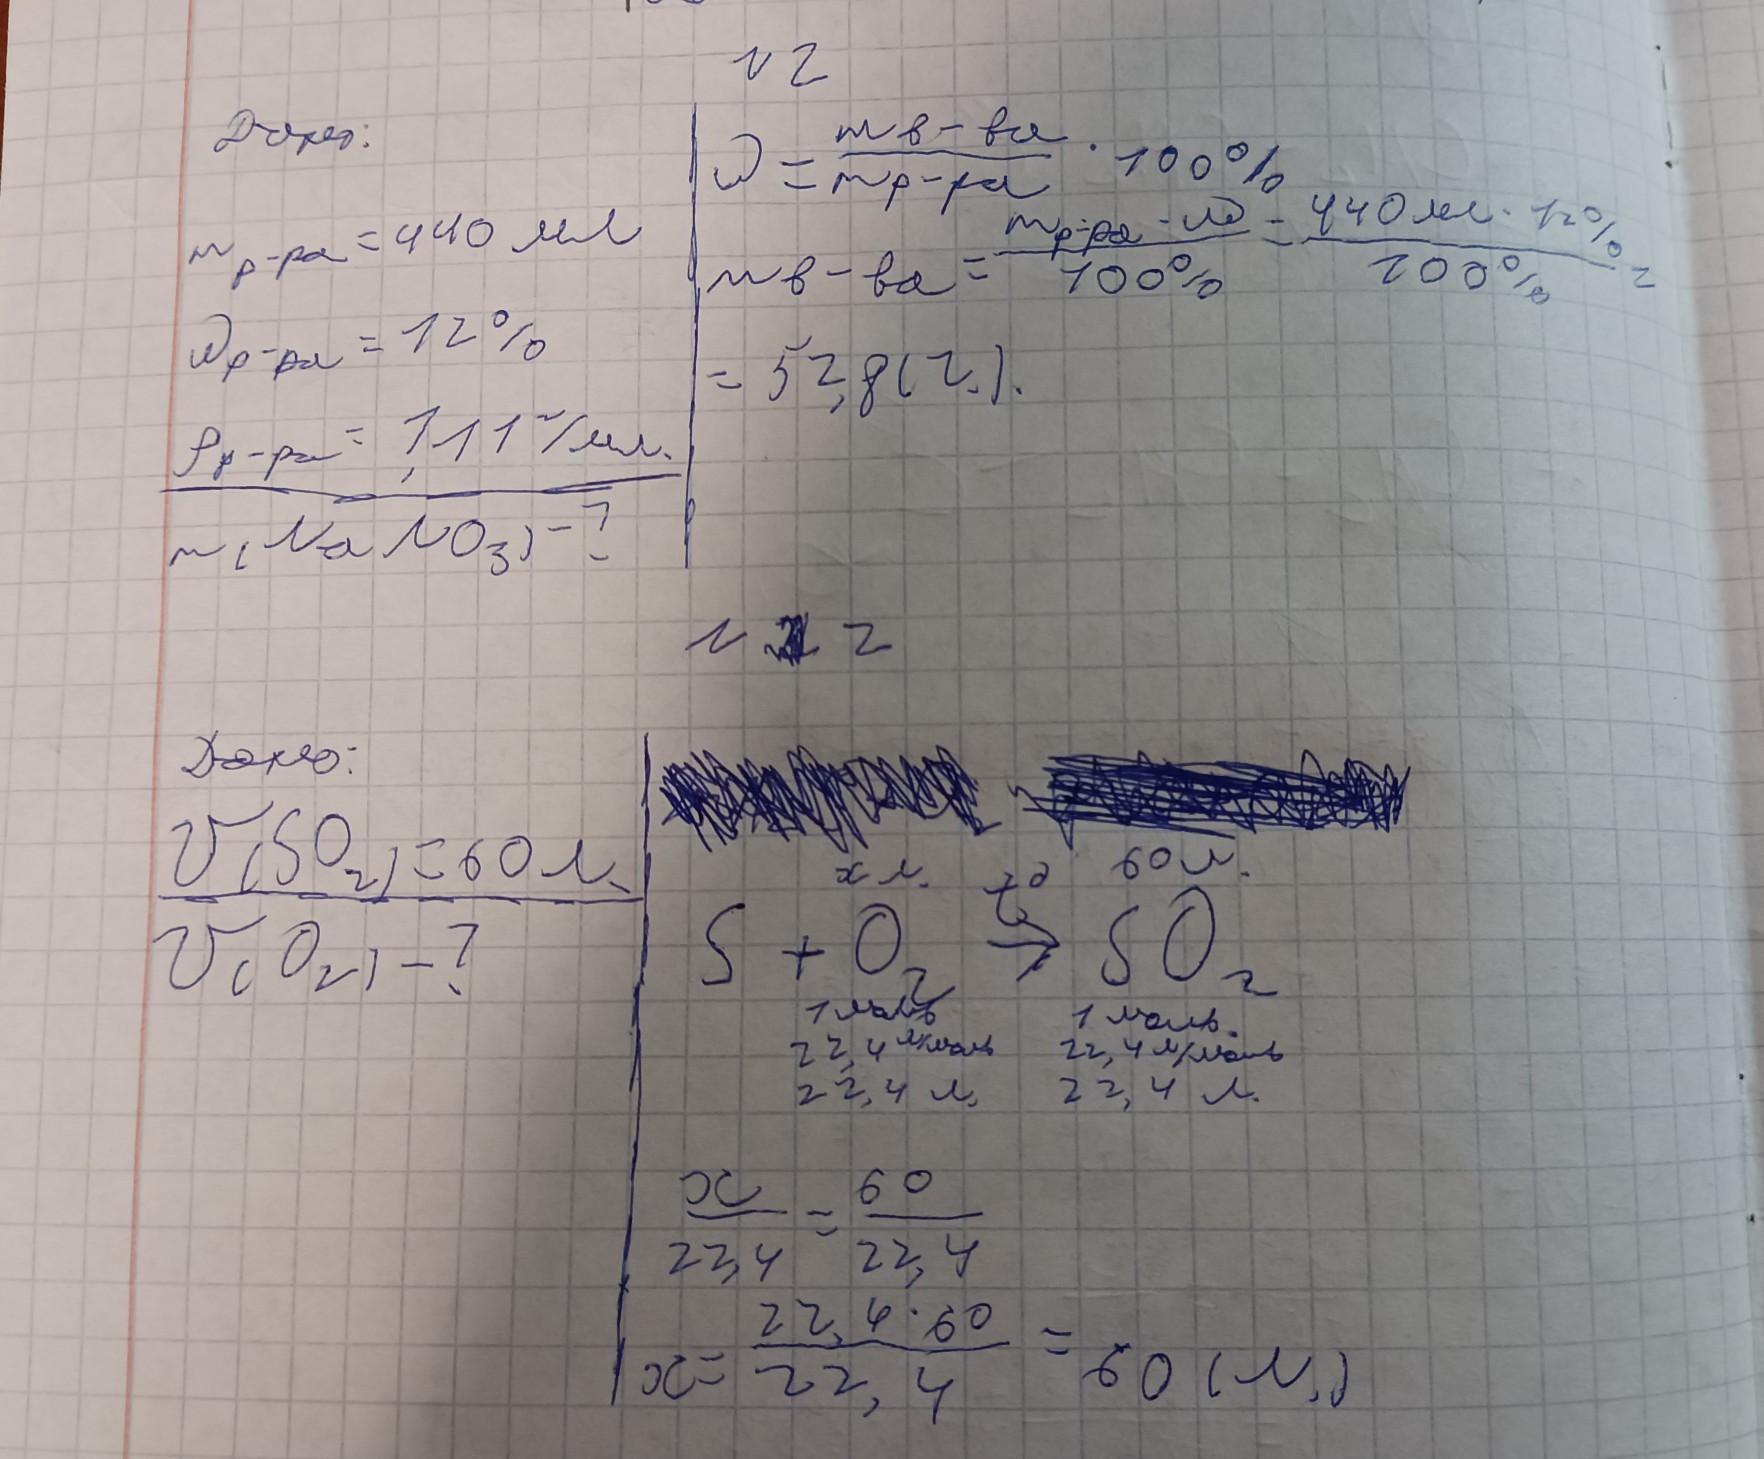 N 2
Дано:
m р-ра = 440 мл
ω р-ра = 12%
ρ р-ра = 1,11 г/мл.
m(NaNO₃) - ?
ω = m в-ва / m р-ра · 100%
m в-ва = m р-ра · ω / 100% = 440 мл · 12% / 100% =
= 52,8 (г.).
N 2
Дано:
V(SO₂) = 60 л.
V(O₂) - ?
x л. 60 л.
S + O₂ t° → SO₂
1 моль 1 моль.
22,4 л/моль 22,4 л/моль
22,4 л. 22,4 л.
x / 22,4 = 60 / 22,4
x = 22,4 · 60 / 22,4 = 60 (л.)